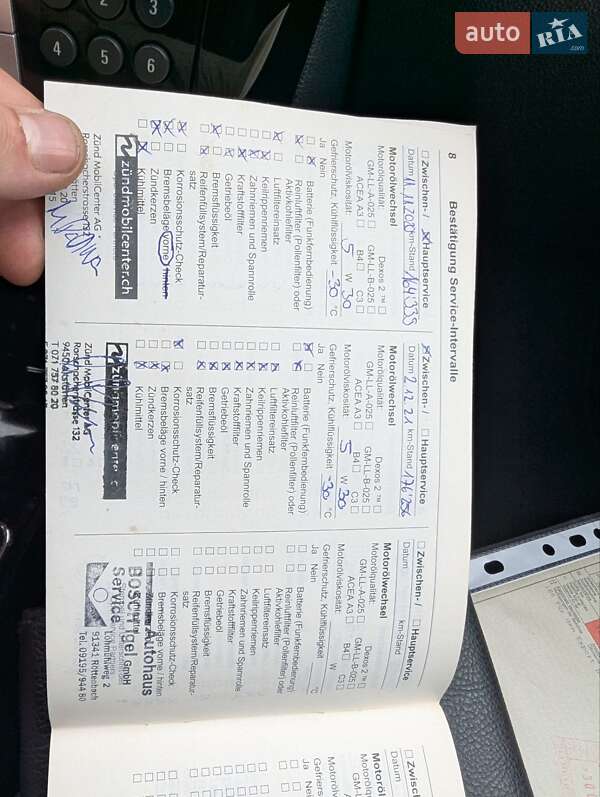 auto RIA.com
4
5
6
8 Bestätigung Service-Intervalle
Zwischen-/ Hauptservice
Datum 11.11.2020 km-Stand 164'339
Motorölwechsel
Motorölqualität: Dexos 2 ™
GM-LL-A-025 GM-LL-B-025
ACEA A3 B4 C3
Motorölviskosität: 5 W 30
Gefrierschutz, Kühlflüssigkeit -30 °C
Ja Nein
Batterie (Funkfernbedienung)
Reinluftfilter (Pollenfilter) oder
Aktivkohlefilter
Luftfiltereinsatz
Keilrippenriemen
Zahnriemen und Spannrolle
Kraftstofffilter
Getriebeöl
Bremsflüssigkeit
Reifenfüllsystem/Reparatur-
satz
Korrosionsschutz-Check
Bremsbeläge vorne / hinten
Zündkerzen
Kühlmittel
zündmobilcenter.ch
Zünd MobilCenter AG
Zwischen-/ Hauptservice
Datum 2.12.21 km-Stand 176'256
Motorölwechsel
Motorölqualität: Dexos 2 ™
GM-LL-A-025 GM-LL-B-025
ACEA A3 B4 C3
Motorölviskosität: 5 W 30
Gefrierschutz, Kühlflüssigkeit -30 °C
Ja Nein
Batterie (Funkfernbedienung)
Reinluftfilter (Pollenfilter) oder
Aktivkohlefilter
Luftfiltereinsatz
Keilrippenriemen
Zahnriemen und Spannrolle
Kraftstofffilter
Getriebeöl
Bremsflüssigkeit
Reifenfüllsystem/Reparatur-
satz
Korrosionsschutz-Check
Bremsbeläge vorne / hinten
Zündkerzen
Kühlmittel
Zünd MobilCenter
Rorschacherstrasse 132
9450 Altstätten
T 071 757 80 20
Zwischen-/ Hauptservice
Datum km-Stand
Motorölwechsel
Motorölqualität: Dexos 2 ™
GM-LL-A-025 GM-LL-B-025
ACEA A3 B4 C3
Motorölviskosität: W
Gefrierschutz, Kühlflüssigkeit °C
Ja Nein
Batterie (Funkfernbedienung)
Reinluftfilter (Pollenfilter) oder
Aktivkohlefilter
Luftfiltereinsatz
Keilrippenriemen
Zahnriemen und Spannrolle
Kraftstofffilter
Getriebeöl
Bremsflüssigkeit
Reifenfüllsystem/Reparatur-
satz
Korrosionsschutz-Check
Bremsbeläge vorne / hinten
Autohaus
GmbH
Service
Lohmühlweg 2
91341 Röttenbach
Tel. 09195/944 80